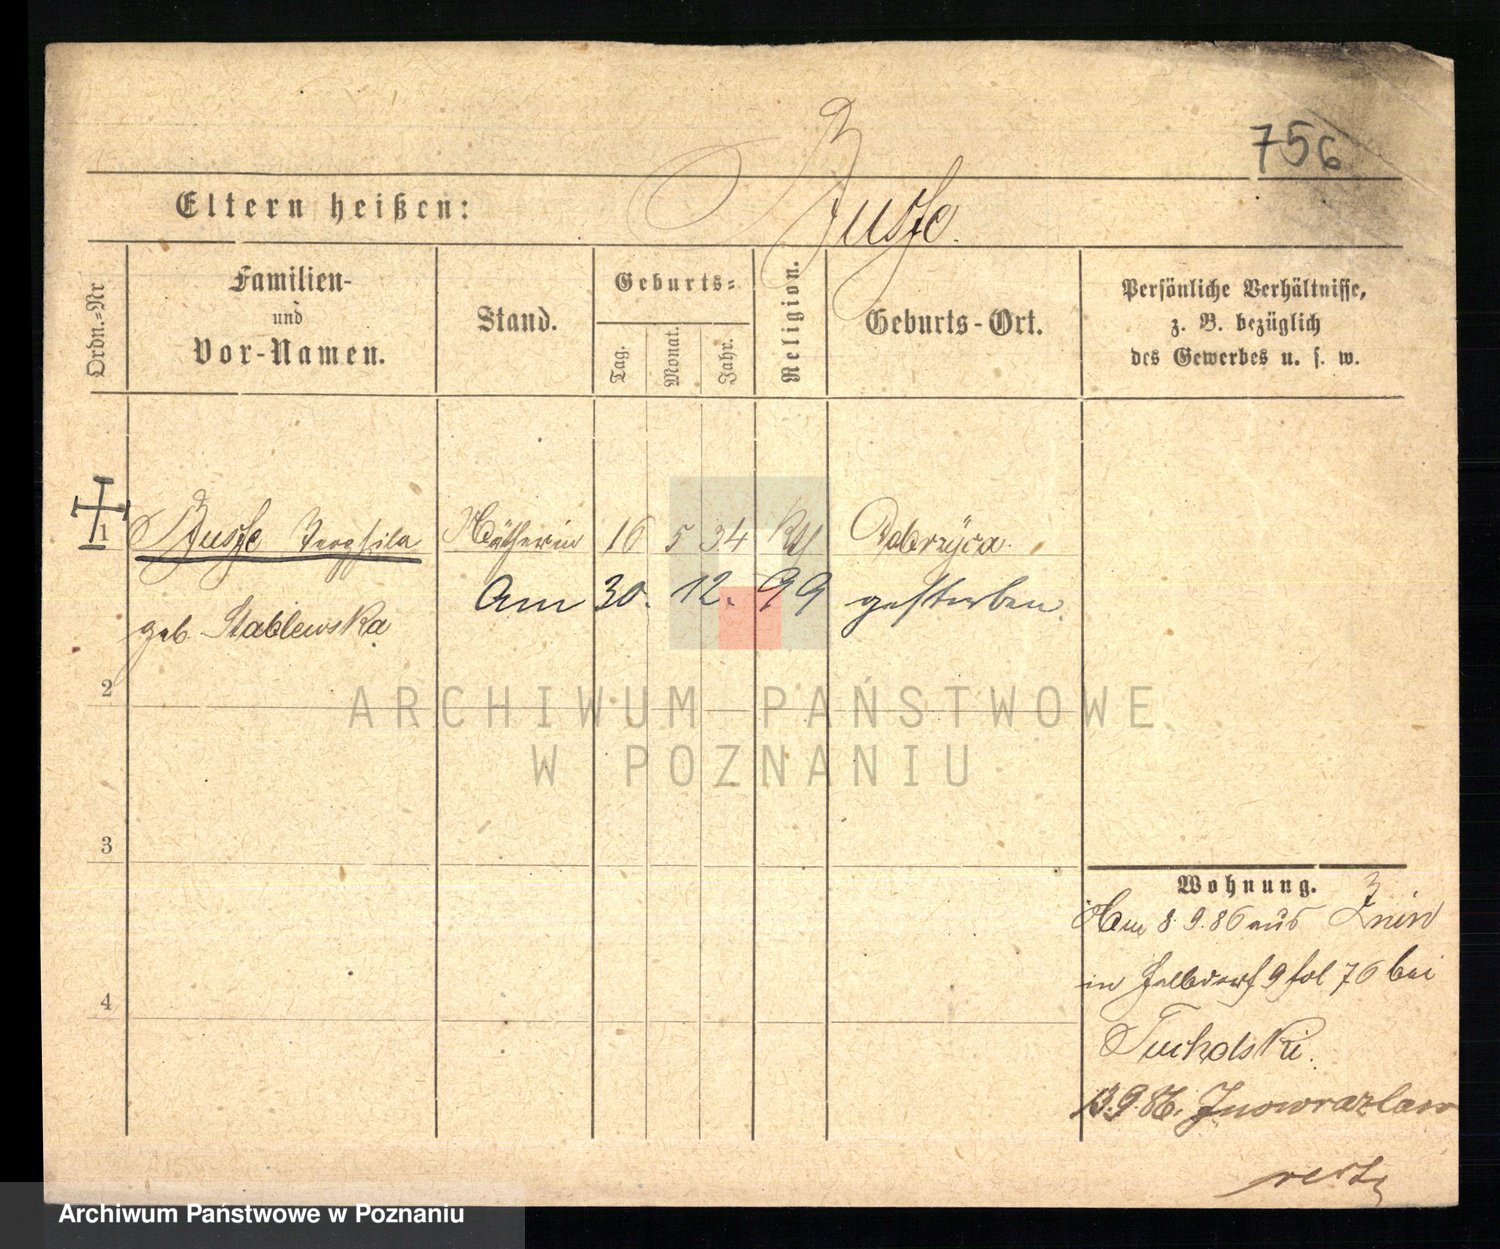 756
Eltern heißen: Busse.
Ordn.-Nr
Familien-
und
Vor-Namen.
Stand.
Geburts-
Tag.
Monat.
Jahr.
Religion.
Geburts-Ort.
Persönliche Verhältnisse,
z. B. bezüglich
des Gewerbes u. s. w.
1 Busse Teophila 16 5 34 Kth Dobrzyca
am 30. 12. 99 gestorben.
geb Stablewska
2
3
4
Wohnung.
Am 8. 9. 86 aus Znin
in 9 fol 76 bei
Tucholski.
13.9.86. Inowrazlaw
ARCHIWUM PAŃSTWOWE
W POZNANIU
Archiwum Państwowe w Poznaniu